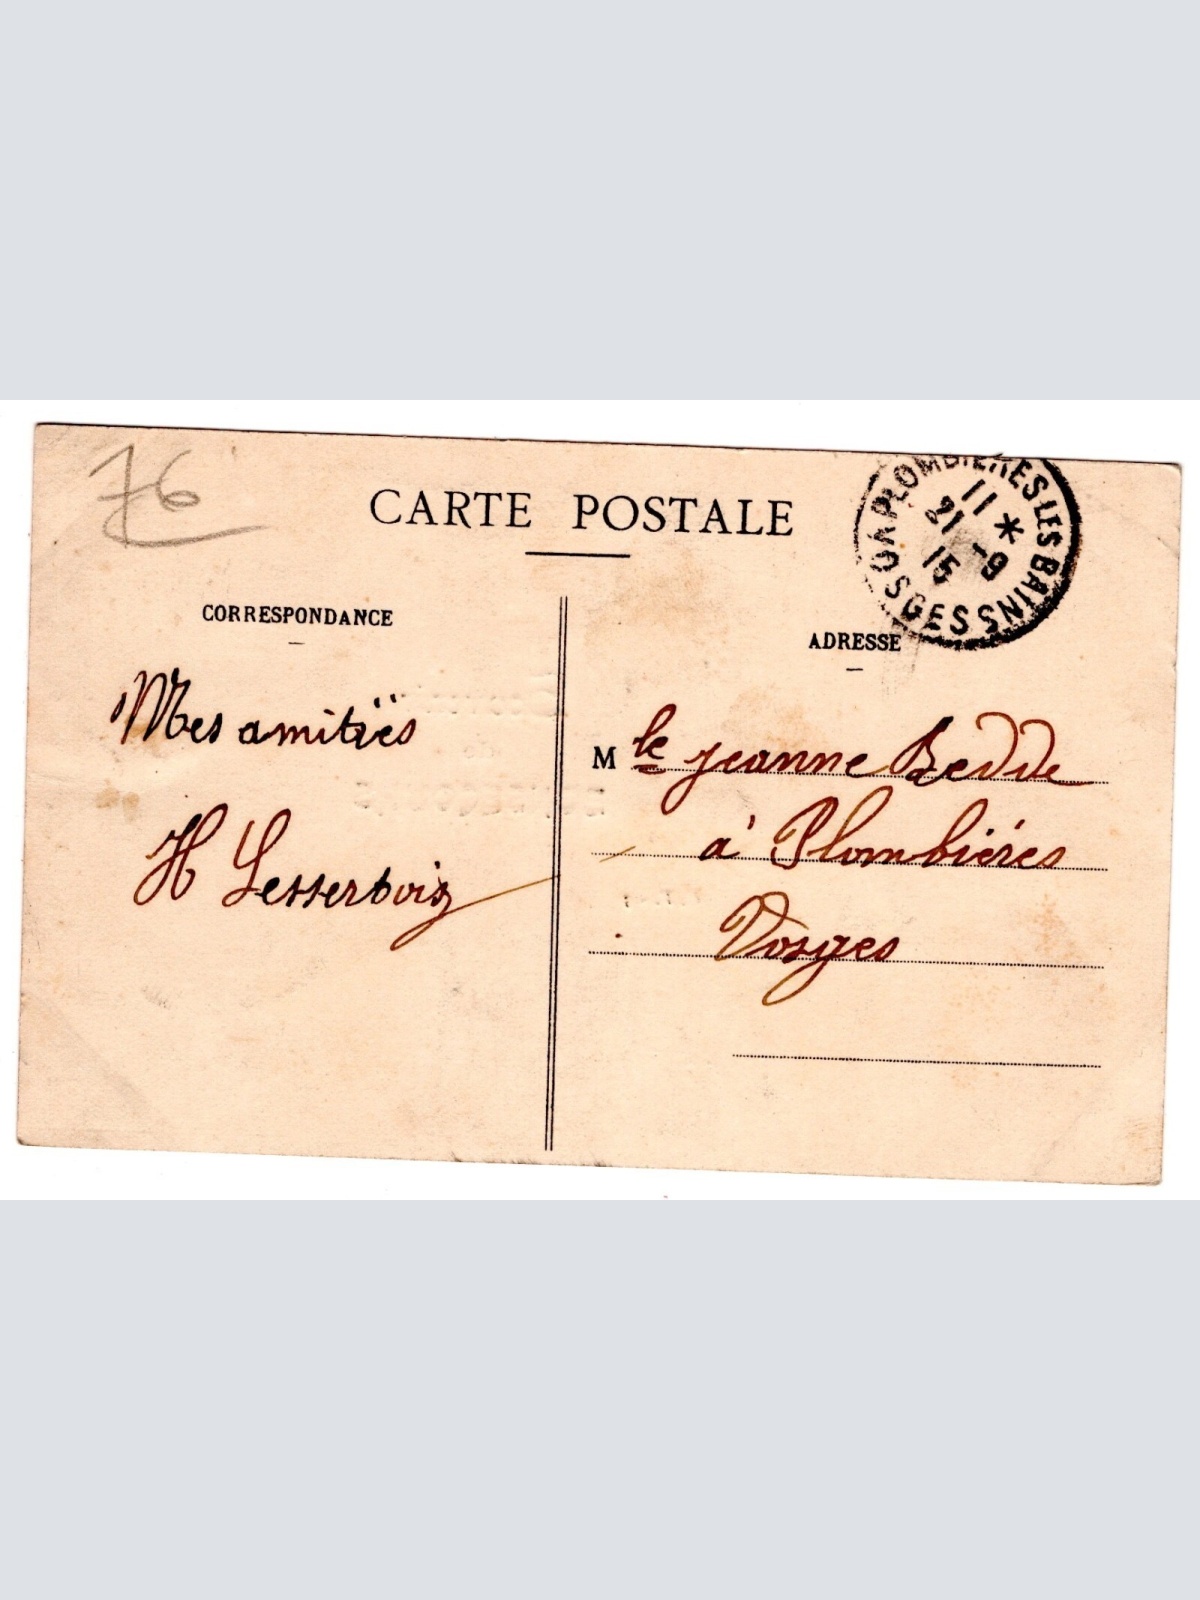 76
CARTE POSTALE
PLOMBIÈRES LES BAINS
VOSGES
11 *
21 -9
15
CORRESPONDANCE
ADRESSE
Mes amitiés
H
Mle jeanne Bedde
à Plombiéres
Vosges